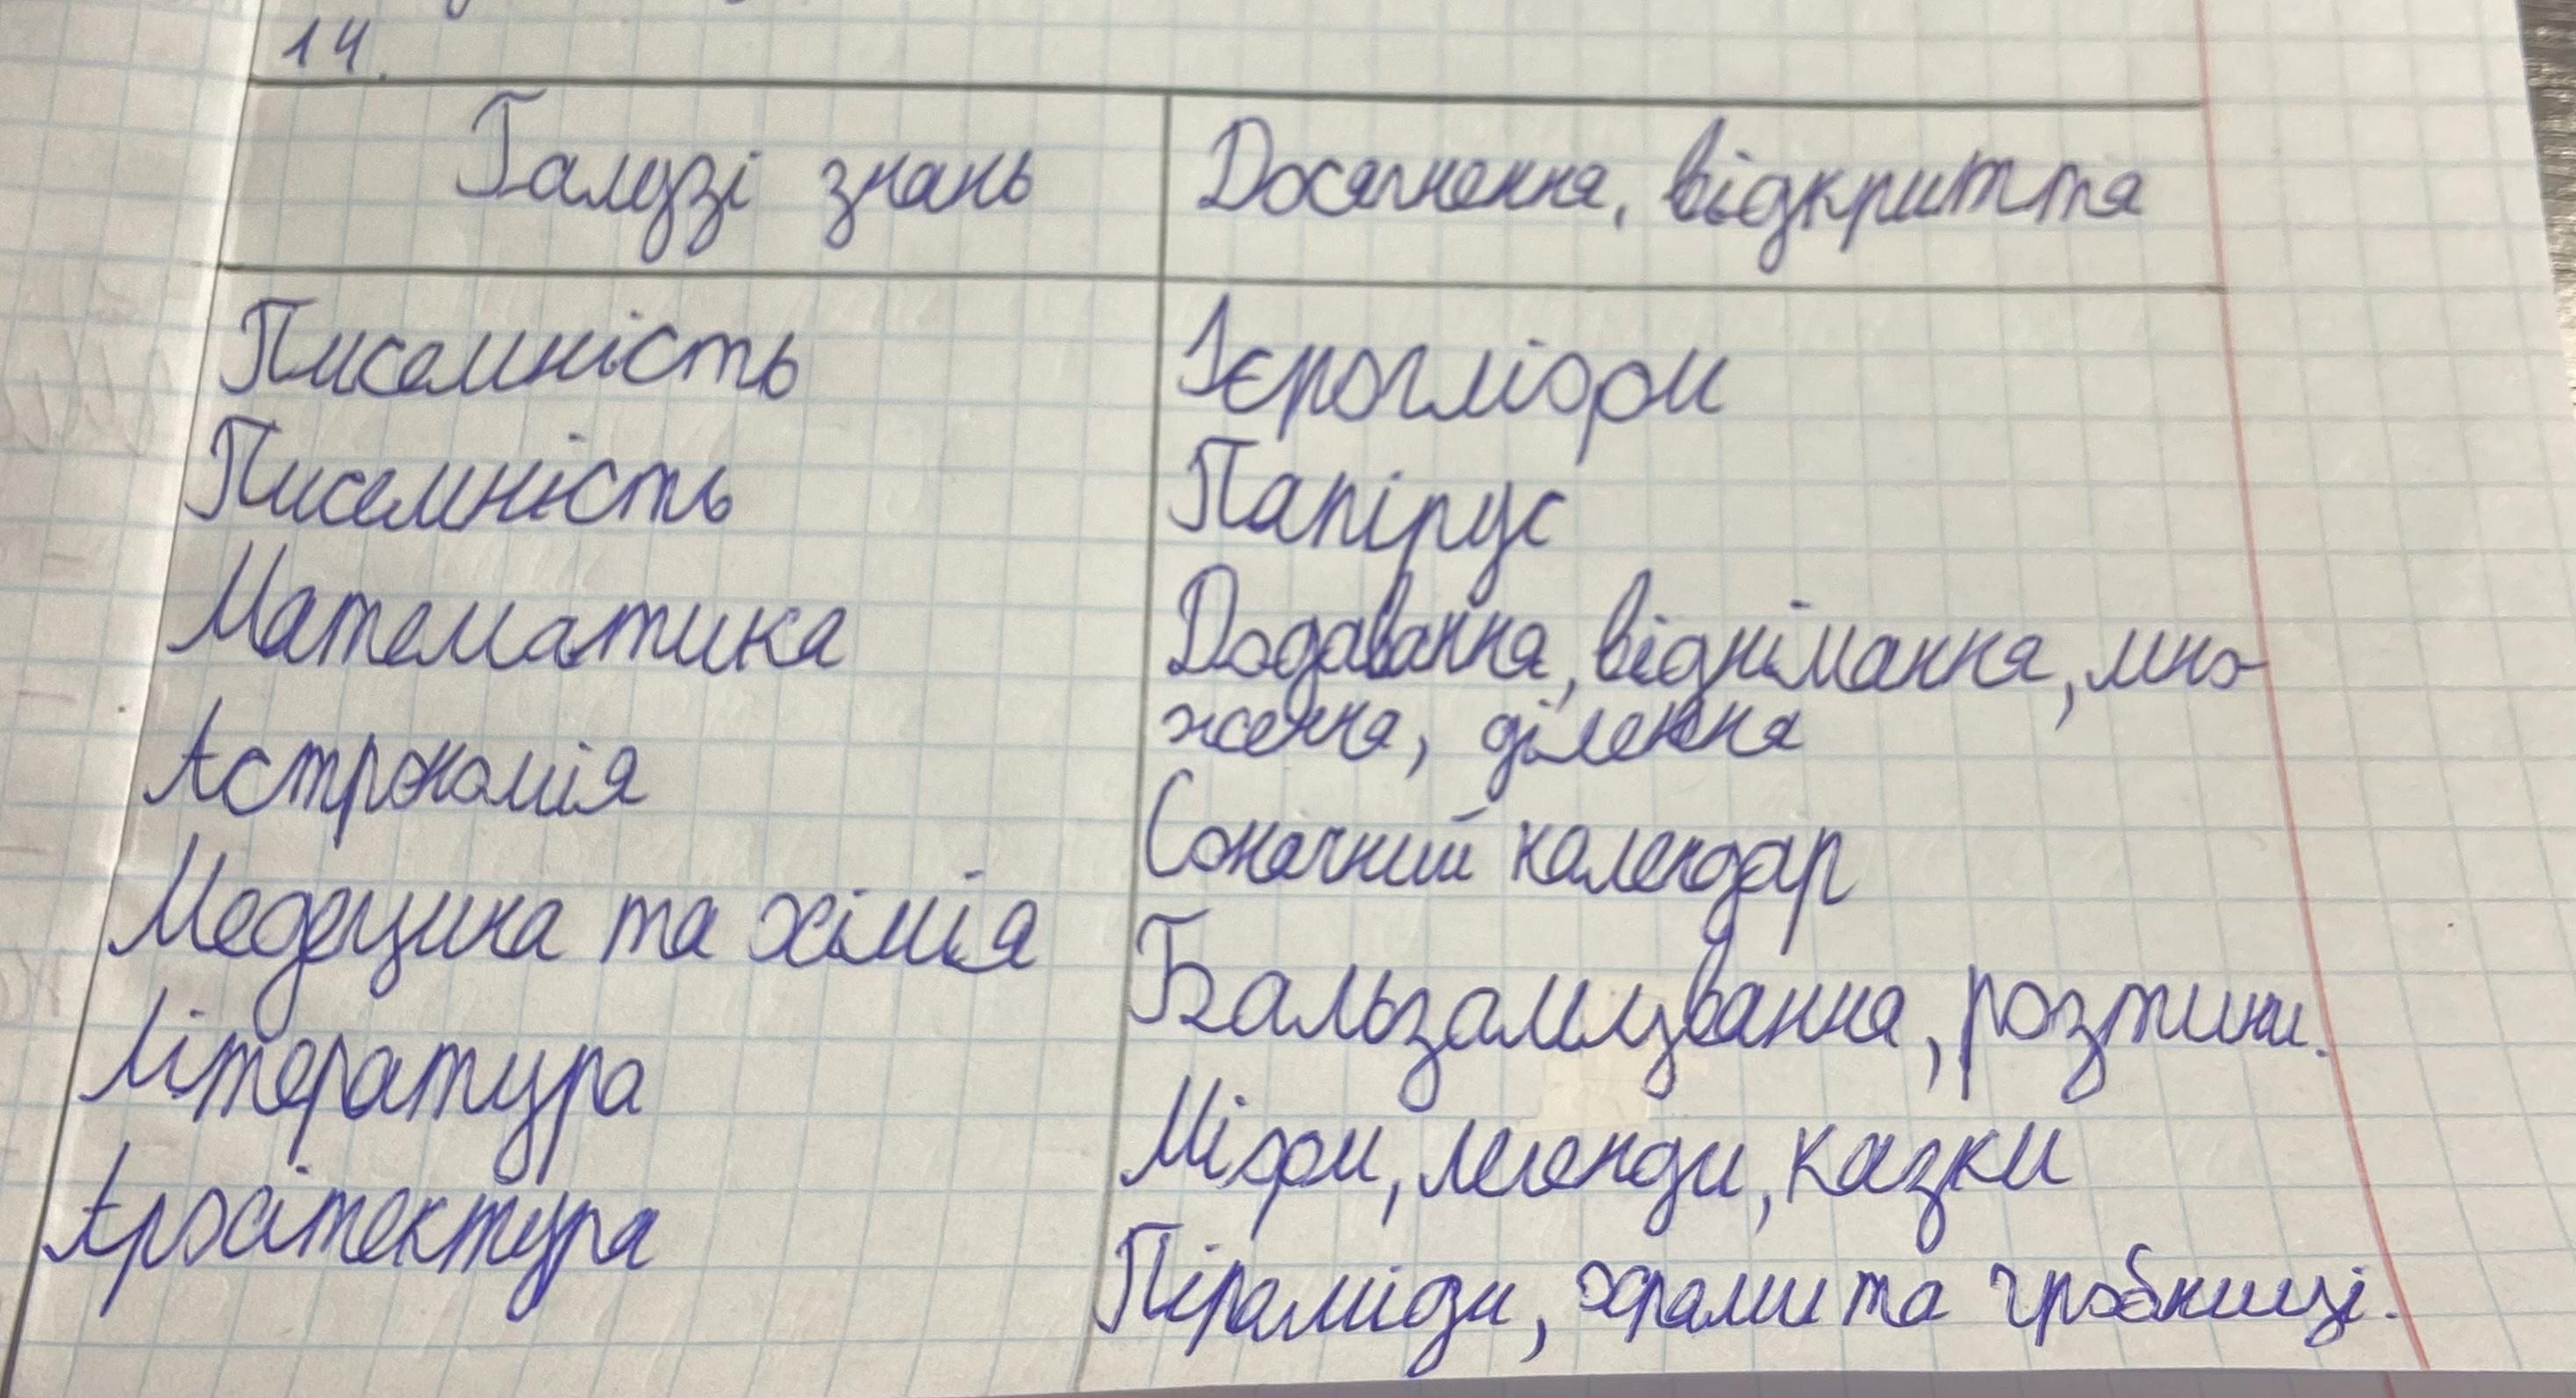 14.
Галузі знань
Досягнення, відкриття
Писемність
Ієрогліфи
Писемність
Папірус
Математика
Додавання, віднімання, мно-
ження, ділення
Астрономія
Сонячний календар
Медецина та хімія
Бальзамування, розтини.
Література
Міфи, легенди, казки
Архітектура
Піраміди, храми та гробниці.